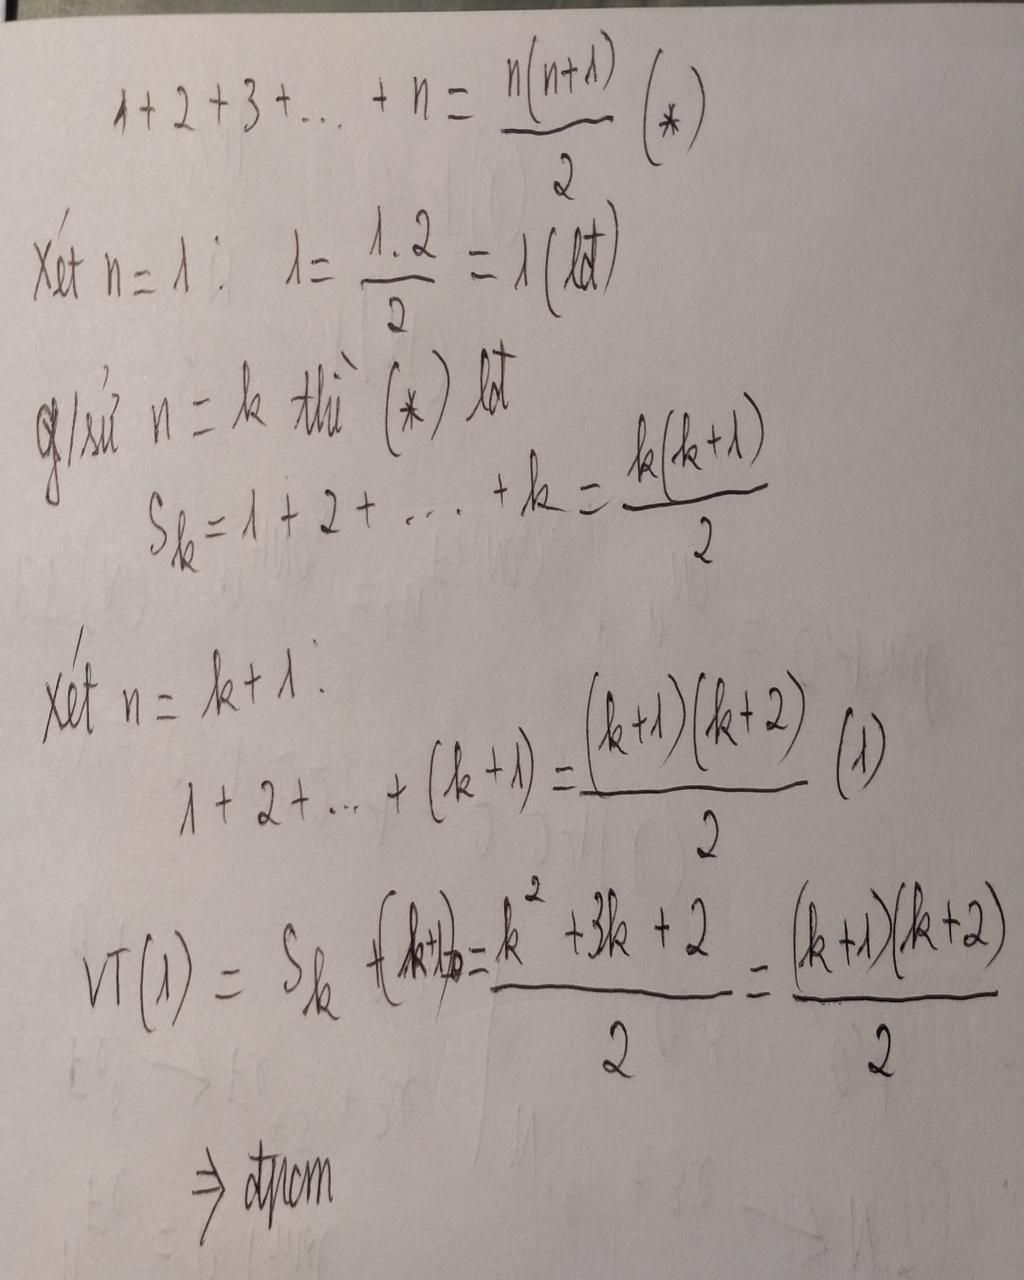 1 + 2 + 3 + ... + n = n(n+1)/2 (*)
Xét n = 1 : 1 = 1.2/2 = 1 (lđ)
g/sử n = k thì (*) lđ
S_k = 1 + 2 + .... + k = k(k+1)/2
Xét n = k + 1 :
1 + 2 + ... + (k+1) = (k+1)(k+2)/2 (1)
VT(1) = S_k + (k+1) = k² + 3k + 2/2 = (k+1)(k+2)/2
⇒ đpcm